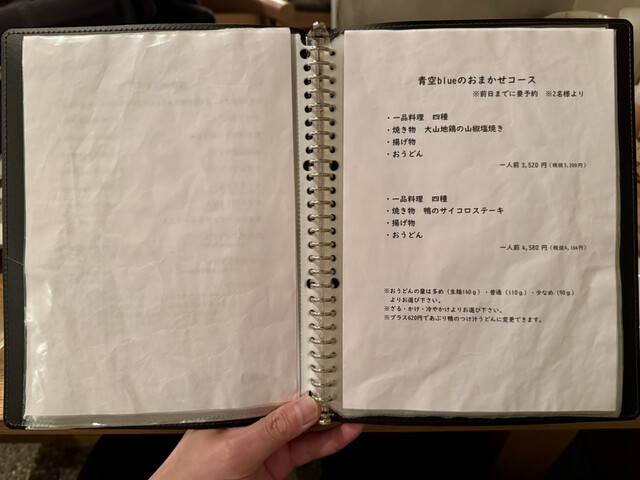 青空blueのおまかせコース
※前日までに要予約　※2名様より
・一品料理　四種
・焼き物　大山地鶏の山椒塩焼き
・揚げ物
・おうどん
一人前 3,520 円（税抜3,200円）
・一品料理　四種
・焼き物　鴨のサイコロステーキ
・揚げ物
・おうどん
一人前 4,580 円（税抜4,164円）
※おうどんの量は多め（生麺140g）・普通（110g）・少なめ（90g）
よりお選び下さい。
※ざる・かけ・冷やかけよりお選び下さい。
※プラス620円であぶり鴨のつけ汁うどんに変更できます。